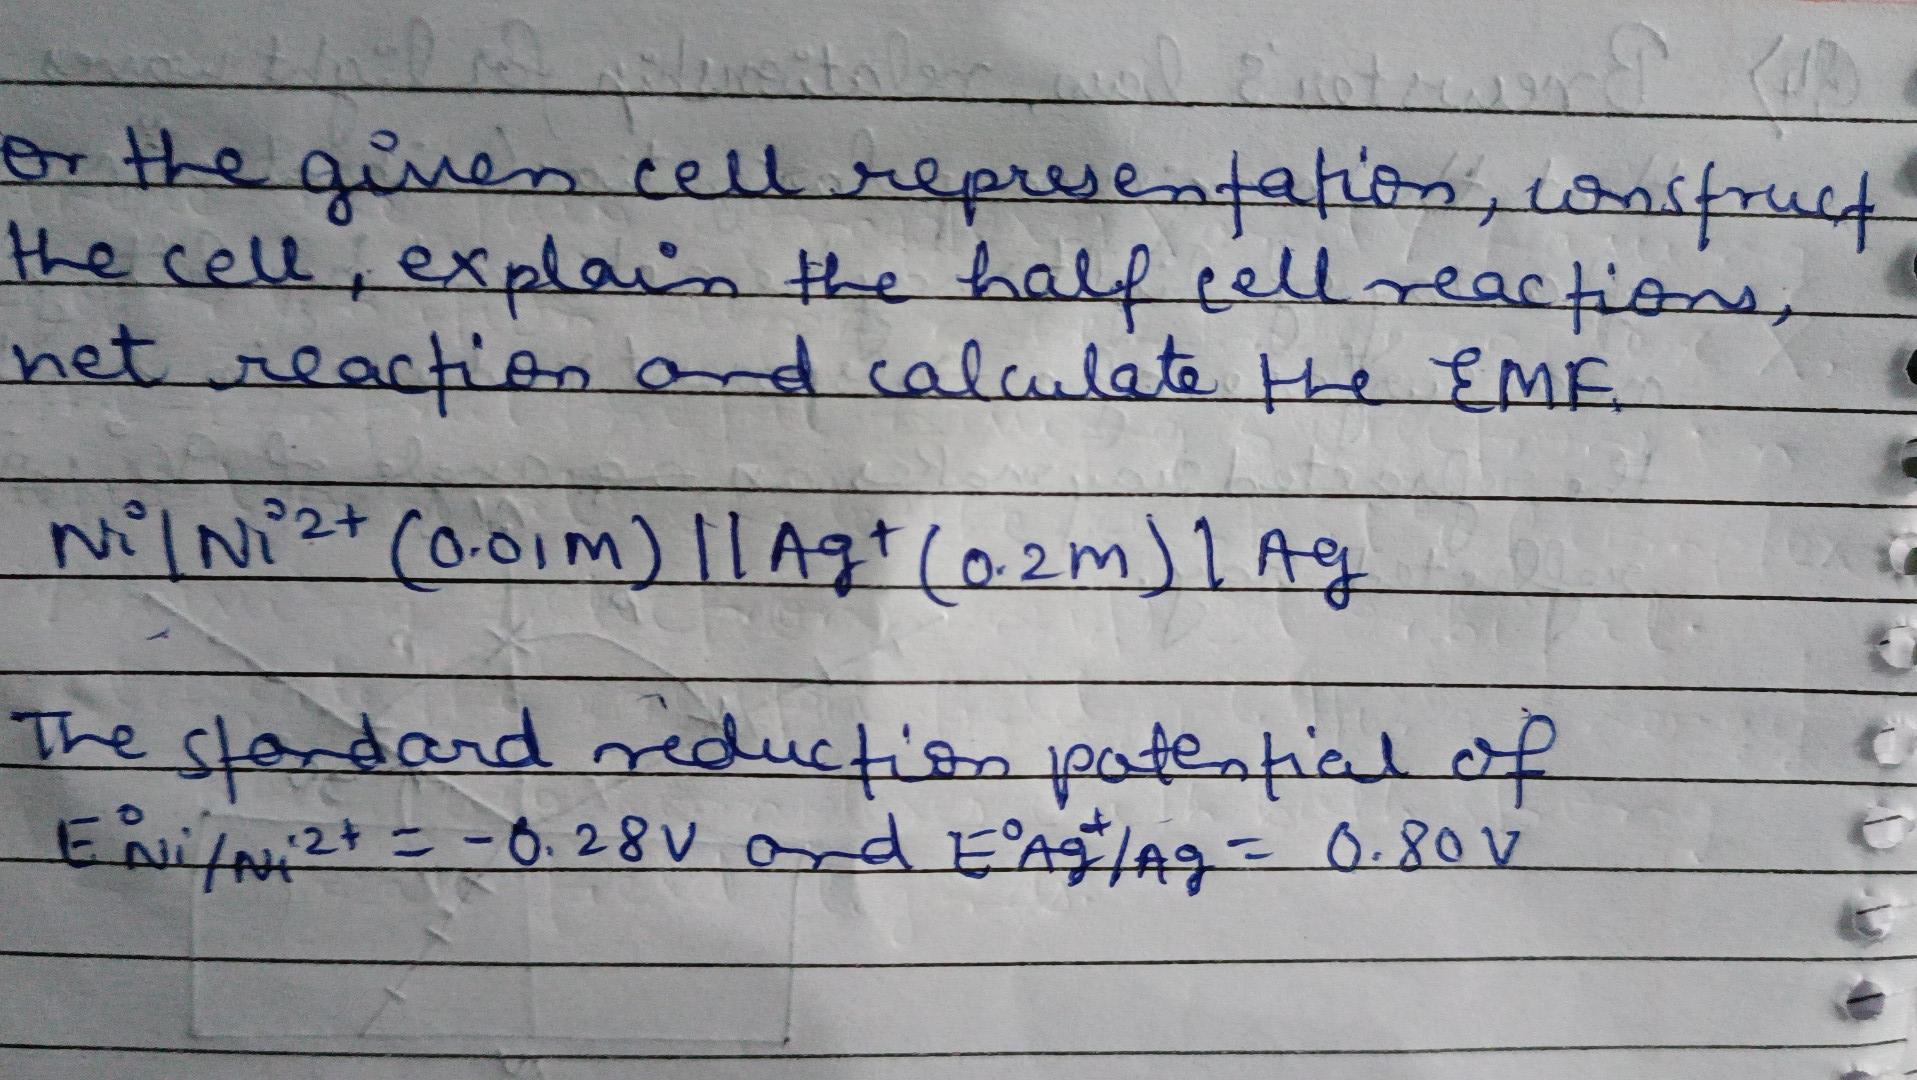 or the given cell representation, construct
the cell, explain the half cell reactions,
net reaction and calculate the EMF.
Ni | Ni²⁺ (0.01M) || Ag⁺ (0.2M) | Ag
The standard reduction potential of
E°Ni/Ni²⁺ = -0.28V and E°Ag⁺/Ag = 0.80V